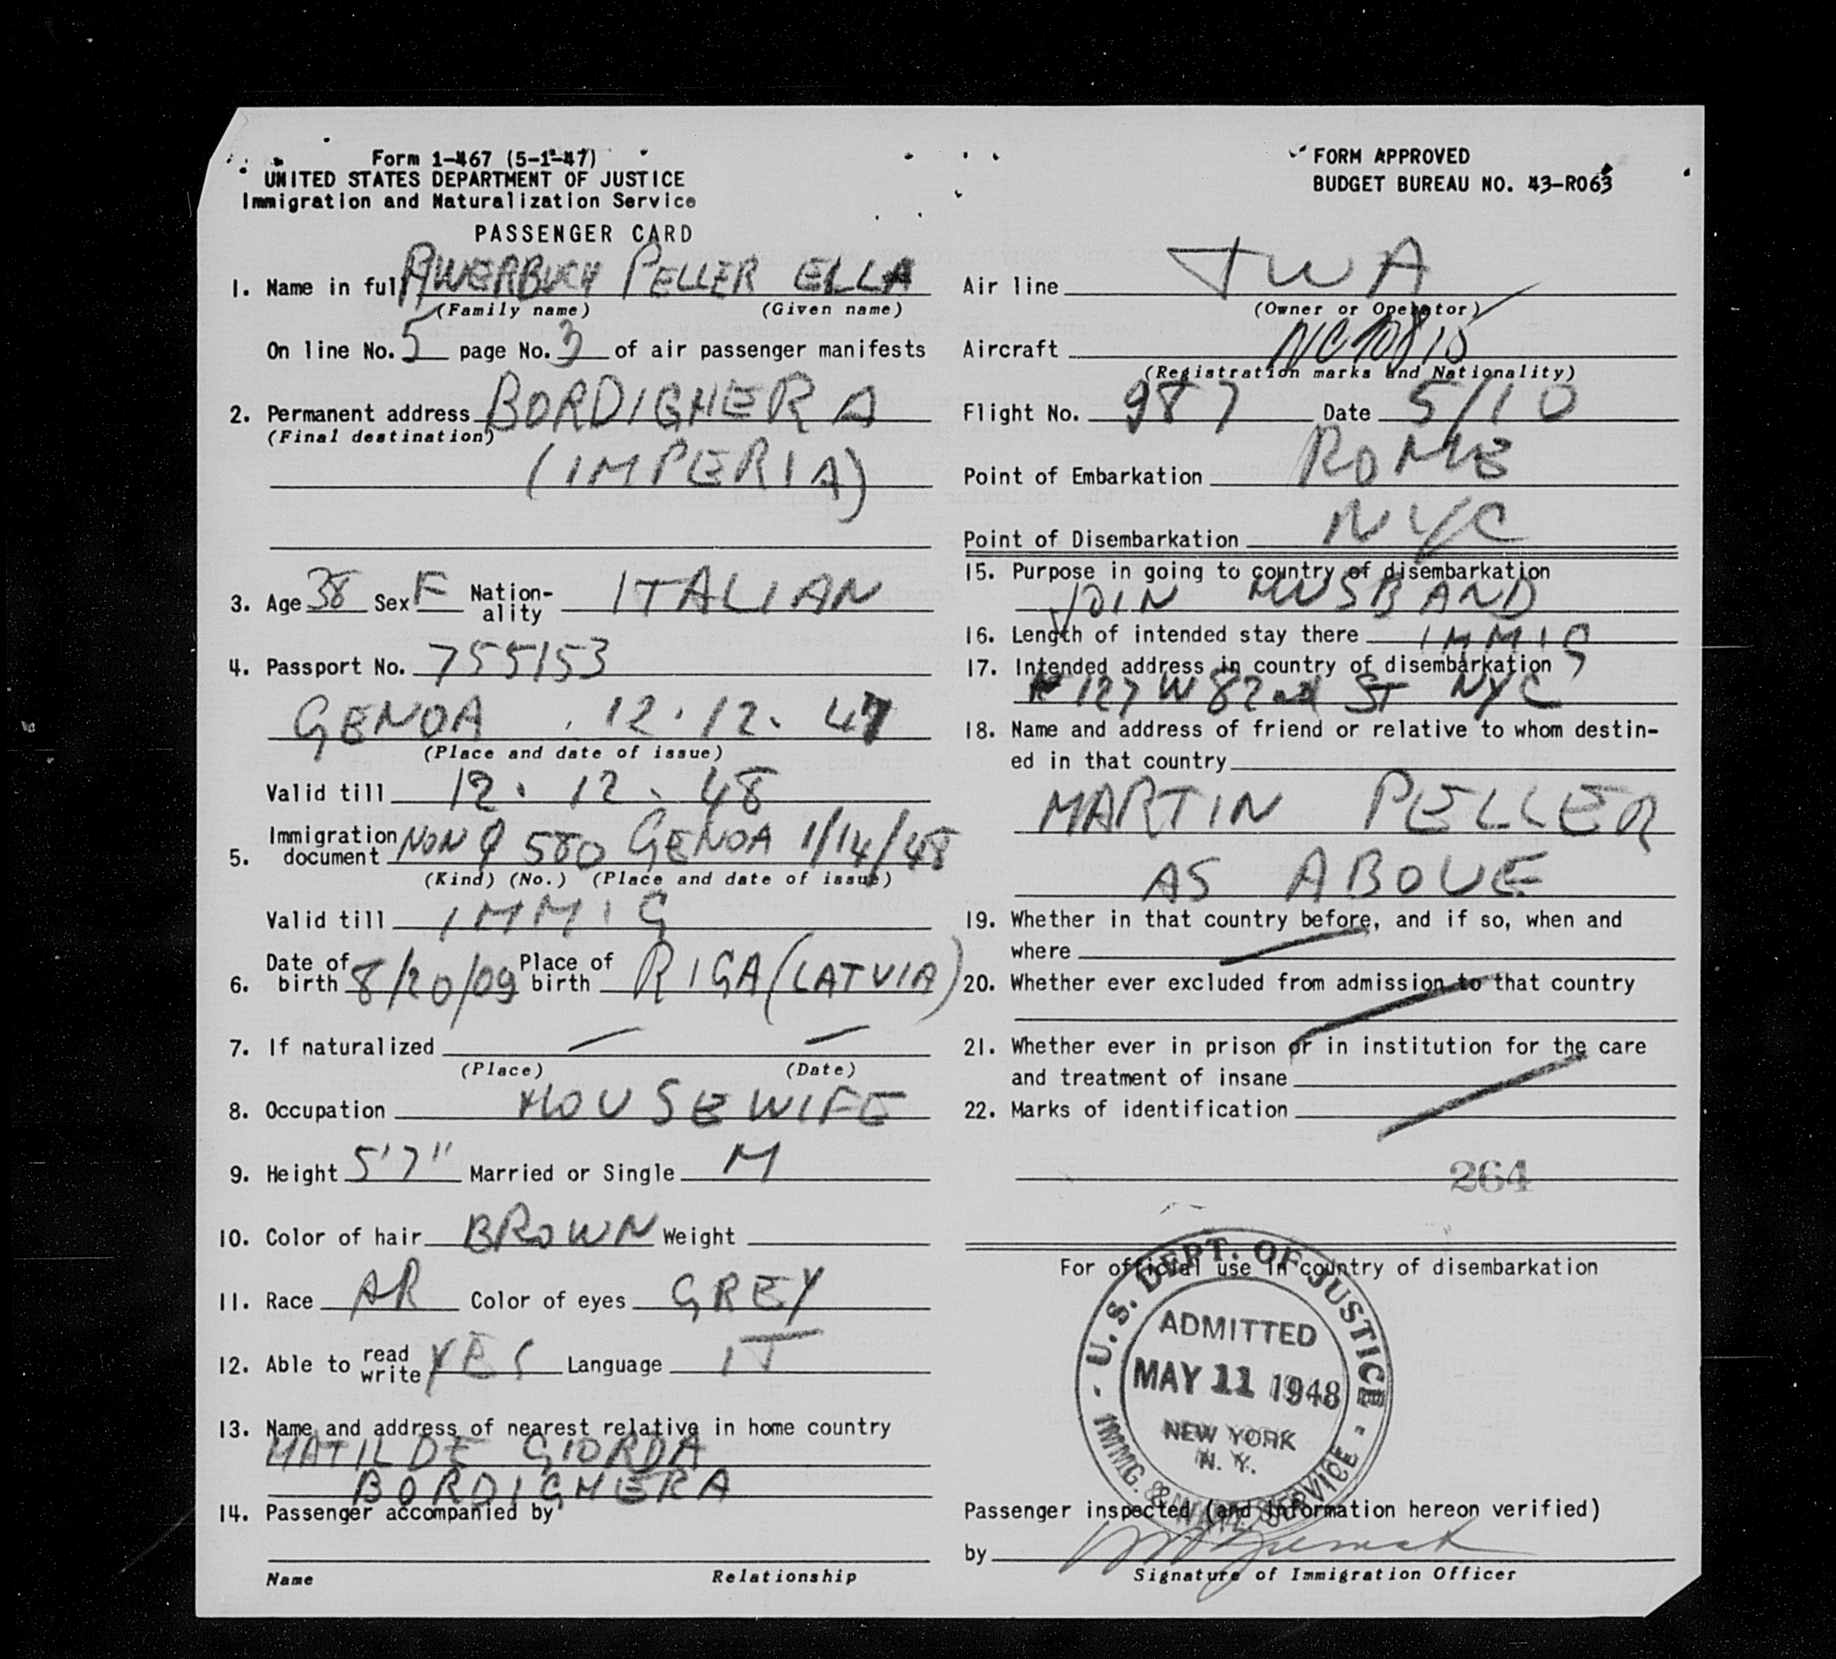 Form 1-467 (5-1-47)
UNITED STATES DEPARTMENT OF JUSTICE
Immigration and Naturalization Service
PASSENGER CARD
FORM APPROVED
BUDGET BUREAU NO. 43-R063
1. Name in full AWERBUCH PELLER ELLA
(Family name) (Given name)
On line No. 5 page No. 3 of air passenger manifests
2. Permanent address BORDIGHERA
(Final destination)
(IMPERIA)
3. Age 38 Sex F Nationality ITALIAN
4. Passport No. 755153
GENOA . 12.12.47
(Place and date of issue)
Valid till 12.12.48
5. Immigration document NON Q 580 GENOA 1/14/48
(Kind) (No.) (Place and date of issue)
Valid till IMMIG
6. Date of birth 8/20/09 Place of birth RIGA (LATVIA)
7. If naturalized — —
(Place) (Date)
8. Occupation HOUSEWIFE
9. Height 5'7" Married or Single M
10. Color of hair BROWN Weight
11. Race AR Color of eyes GREY
12. Able to read write YES Language IT
13. Name and address of nearest relative in home country
MATILDE GIORDA
BORDIGHERA
14. Passenger accompanied by
Name Relationship
Air line TWA
(Owner or Operator)
Aircraft
(Registration marks and Nationality)
Flight No. 987 Date 5/10
Point of Embarkation ROME
Point of Disembarkation NYC
15. Purpose in going to country of disembarkation
JOIN HUSBAND
16. Length of intended stay there IMMIG
17. Intended address in country of disembarkation
127 W 82nd ST NYC
18. Name and address of friend or relative to whom destin-
ed in that country
MARTIN PELLER
AS ABOVE
19. Whether in that country before, and if so, when and
where
20. Whether ever excluded from admission to that country
21. Whether ever in prison or in institution for the care
and treatment of insane
22. Marks of identification
264
For official use in country of disembarkation
U.S. DEPT. OF JUSTICE
ADMITTED
MAY 11 1948
NEW YORK
N. Y.
IMMG. & NATZ. SERVICE
Passenger inspected (and information hereon verified)
by
Signature of Immigration Officer